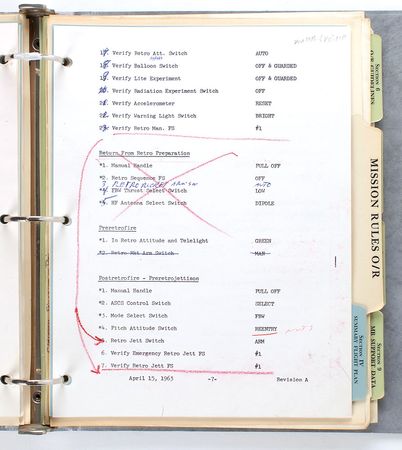 Verify Retro Att. Switch AUTO
Verify Balloon Switch OFF & GUARDED
Verify Lite Experiment OFF & GUARDED
Verify Radiation Experiment Switch OFF
Verify Accelerometer RESET
Verify Warning Light Switch BRIGHT
Verify Retro Man. FS #1
Return From Retro Preparation
*1. Manual Handle PULL OFF
*2. Retro Sequence FS OFF
3. RETRO ROCKET ARM SW AUTO
FBW Thrust Select Switch LOW
HF Antenna Select Switch DIPOLE
Preretrofire
*1. In Retro Attitude and Telelight GREEN
*2. Retro Arm Switch MAN
Postretrofire - Preretrojettison
*1. Manual Handle PULL OFF
*2. ASCS Control Switch SELECT
*3. Mode Select Switch FBW
*4. Pitch Attitude Switch REENTRY
Retro Jett Switch ARM
6. Verify Emergency Retro Jett FS #1
7. Verify Retro Jett FS #1
April 15, 1963 -7- Revision A
SECTION 6
O/R GUIDELINES
MISSION RULES O/R
SECTION IV
SUMMARY FLIGHT PLAN
SECTION 9
MR SUPPORT DATA